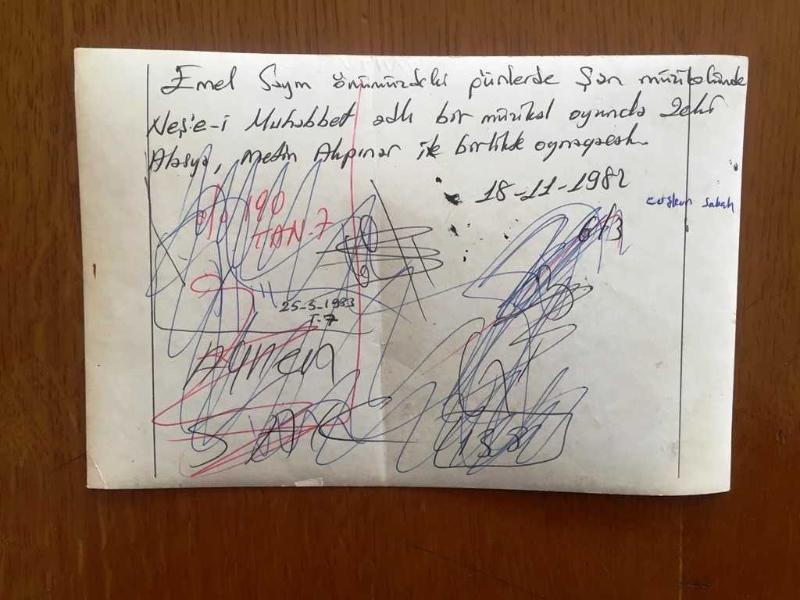 Emel Sayın önümüzdeki günlerde Şan müzikolünde
Neş'e-i Muhabbet adlı bir müzikal oyunda Zeki
Alasya, Metin Akpınar ile birlikte oynayacak.
18-11-1982
coşkun sabah
% 190
TAN-7
6/3
25-3-1983
T-7